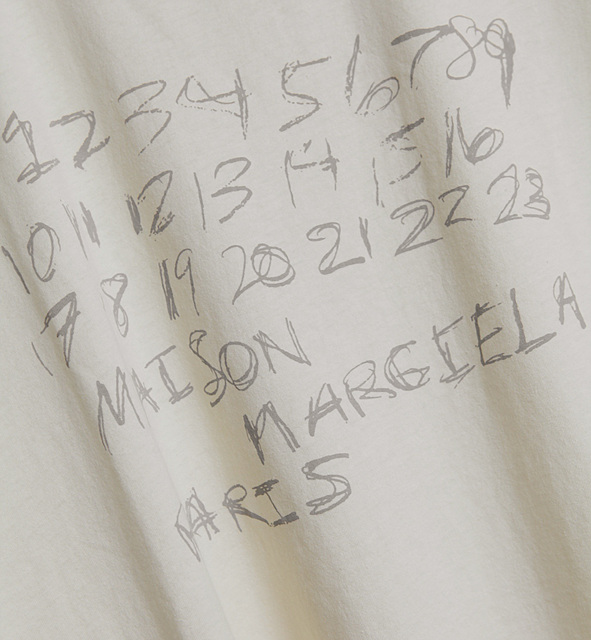 1 2 3 4 5 6 7 8 9
10 11 12 13 14 15 16
17 8 19 20 21 22 23
MAISON
MARGIELA
PARIS